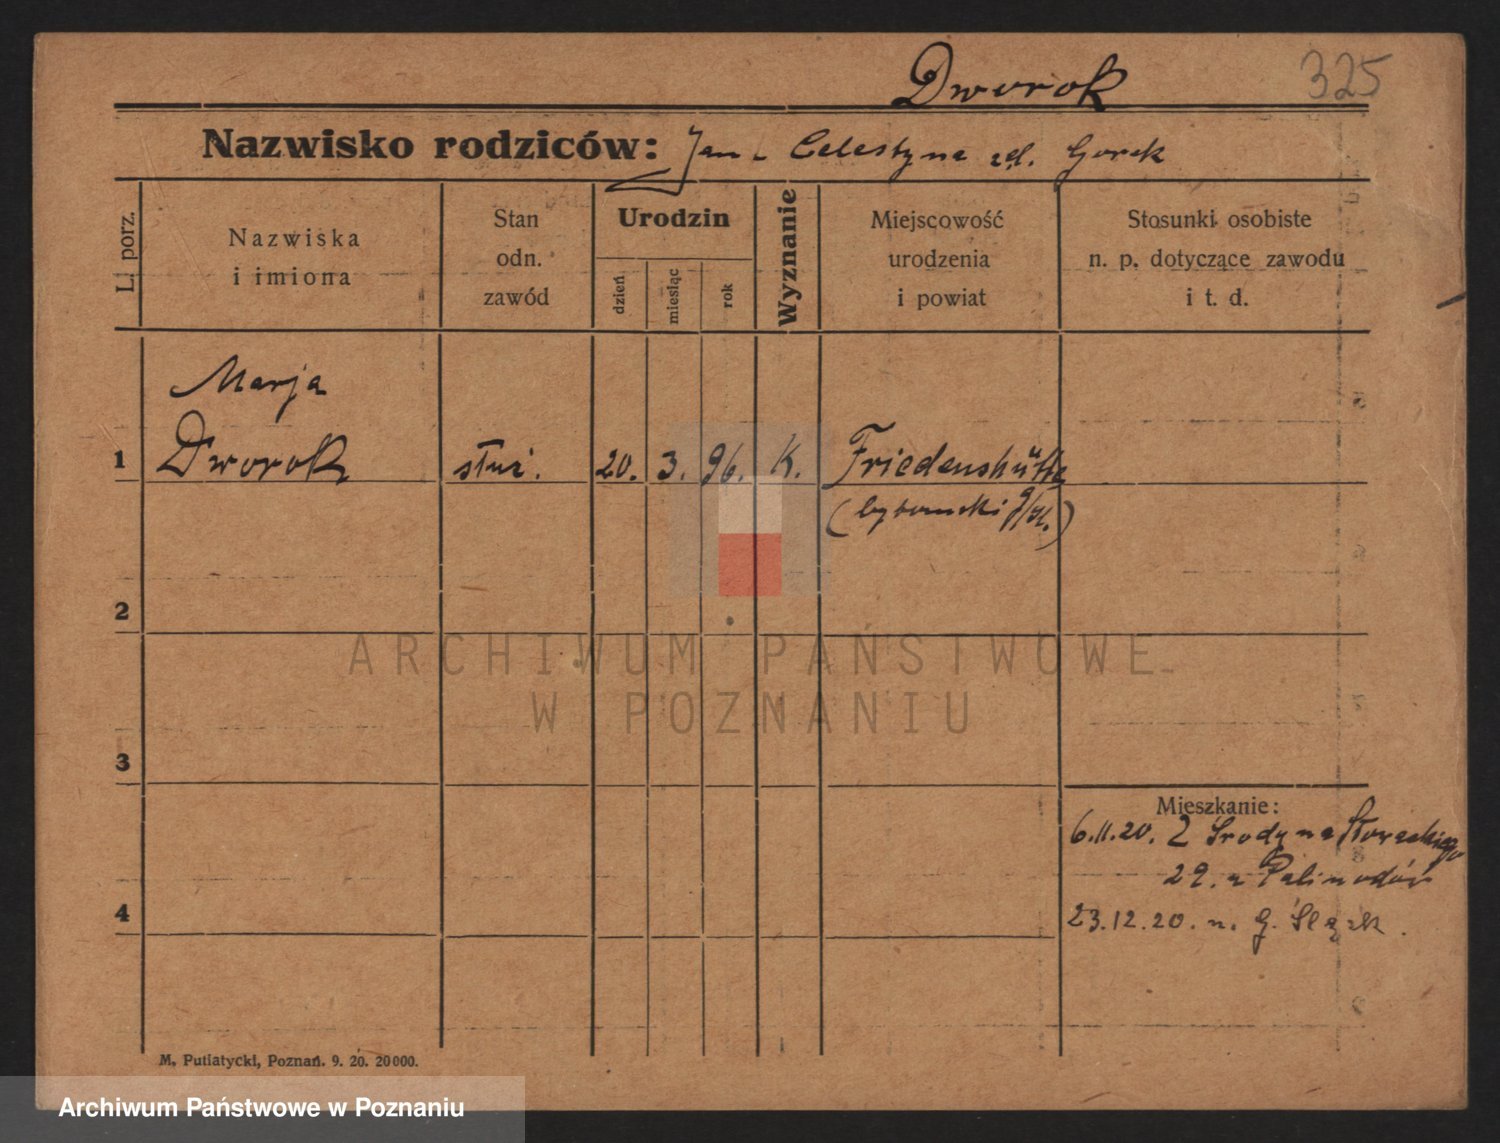 Dworok
325
Nazwisko rodziców: Jan i Celestyna zd. Gorek
L. porz.
Nazwiska
i imiona
Stan
odn.
zawód
Urodzin
dzień
miesiąc
rok
Wyznanie
Miejscowość
urodzenia
i powiat
Stosunki osobiste
n. p. dotyczące zawodu
i t. d.
Marja
1 Dworok służ. 20. 3. 96. K. Friedenshütte
(bytomski g/śl.)
2
ARCHIWUM PAŃSTWOWE
W POZNANIU
3
Mieszkanie:
6.11.20. Z Środy na Słowackiego
29. u Palinodów
4
23.12.20. n. G. Śląsk.
M. Putiatycki, Poznań. 9. 20. 20000.
Archiwum Państwowe w Poznaniu